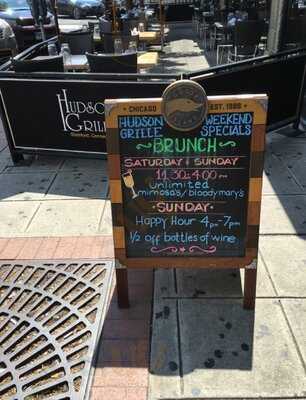 HUDSON
GRILLE
Stamford, Connecticut
CHICAGO
EST. 1988
HUDSON
GRILLE
WEEKEND
SPECIALS
~BRUNCH~
SATURDAY & SUNDAY
11:30-4:00 PM
Unlimited
mimosa's/bloodymary's
SUNDAY
Happy Hour 4pm-7pm
1/2 off bottles of wine